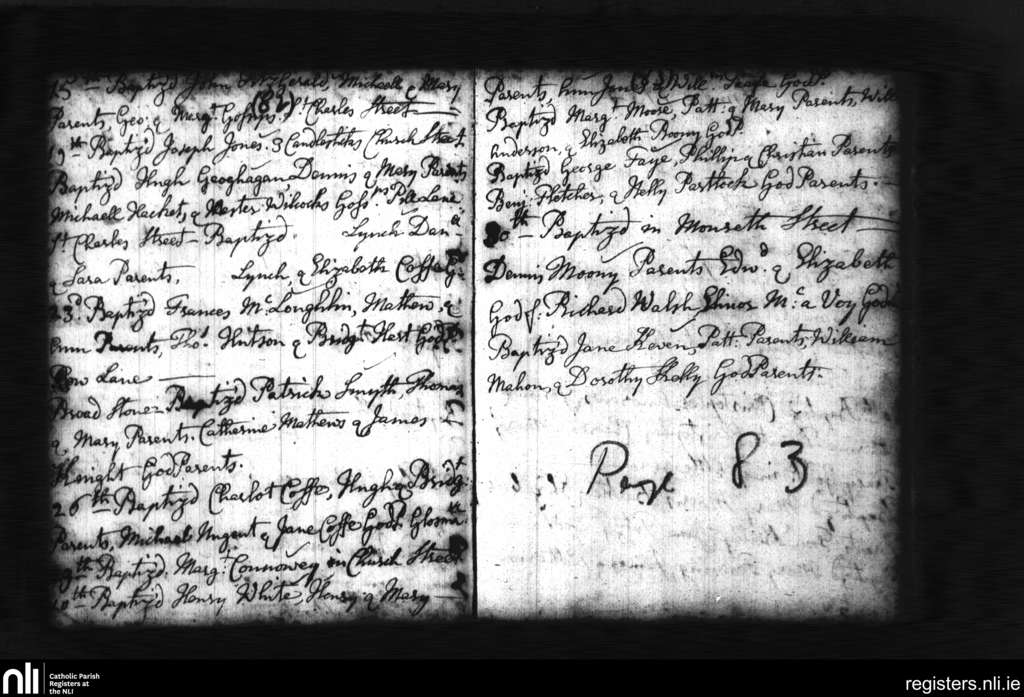 15th Baptiz'd John Fitzherald, Michaell & Mary
(82)
Parents, Geo: & Margt. Gossps. St. Charles Street
19th Baptiz'd Joseph Jones. 3 Candlesticks Church Street.
Baptiz'd Hugh Geoghagan Dennis & Mary Parents
Michaell Hacket, & Hester Wilcocks Gossps. Pill Lane
St. Charles Street - Baptiz'd. Lynch Dan
& Sara Parents, Lynch, & Elizabeth Coffey
23d. Baptiz'd Frances McLoughlin, Mathew, &
Ann Parents, Thos. Hutson & Bridgt. Hert Godp
Bow Lane
Broad Stone - Baptiz'd Patrick Smyth, Thomas
& Mary Parents. Catherine Mathews & James
Knight GodParents.
26th Baptiz'd Charlot Coffe, Hugh & Bridgt.
Parents, Michael Nugent & Jane Coffe Godp.
Baptiz'd Margt. Connowey in Church Street
Baptiz'd Henry White, Henry & Mary
Parents, Ann Jones & Willm. Godp.
Baptiz'd Margt. Moore, Patt: & Mary Parents, Will
Anderson, & Elizabeth Boomy Godp.
Baptiz'd George Faye, Phillip & Christian Parents
Benj: Fletcher, & Nelly Partlock GodParents.
30th - Baptiz'd in Monreth Street
Dennis Moony Parents Edwd. & Elizabeth
Godf: Richard Walsh Elinor Mc a Voy God
Baptiz'd Jane Keven, Patt: Parents, William
Mahon, & Dorothy Skelly GodParents.
Page 83
nli
Catholic Parish
Registers at
the NLI
registers.nli.ie